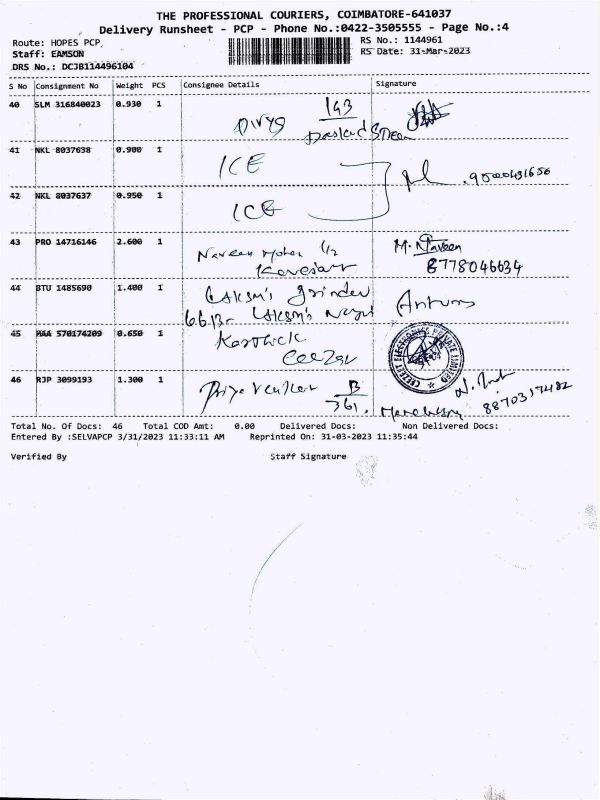 THE PROFESSIONAL COURIERS, COIMBATORE-641037
Delivery Runsheet - PCP - Phone No.:0422-3505555 - Page No.:4
Route: HOPES PCP
RS No.: 1144961
Staff: EAMSON
RS Date: 31-Mar-2023
DRS No.: DCJB114496104
S No Consignment No Weight PCS Consignee Details Signature
40 SLM 316840023 0.930 1
Divya 193
41 NKL 8037638 0.900 1 ICE
42 NKL 8037637 0.950 1 ICE
43 PRO 14716146 2.600 1 Naveen Mohan 1/2 M. Naveen
8778046634
44 BTU 1485690 1.400 1
45 MAA 570174209 0.650 1 Karthick
46 RJP 3099193 1.300 1 Priya Venkat B
361.
8870317482
Total No. Of Docs: 46 Total COD Amt: 0.00 Delivered Docs: Non Delivered Docs:
Entered By :SELVAPCP 3/31/2023 11:33:11 AM Reprinted On: 31-03-2023 11:35:44
Verified By Staff Signature